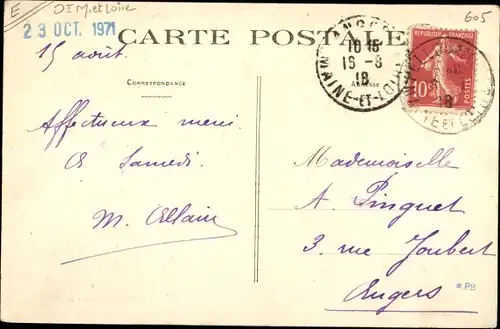 E
DEM.et Loire
605
23 OCT. 1971
CARTE POSTALE
10 15
16 -8
18
MAINE-ET-LOIRE
REPUBLIQUE FRANÇAISE
10c
POSTES
18
CORRESPONDANCE
ADRESSE
15 août.
Affectueux merci
A Samedi.
M. Allain
Mademoiselle
A. Pinguet
3 rue Joubert
Angers
*P8